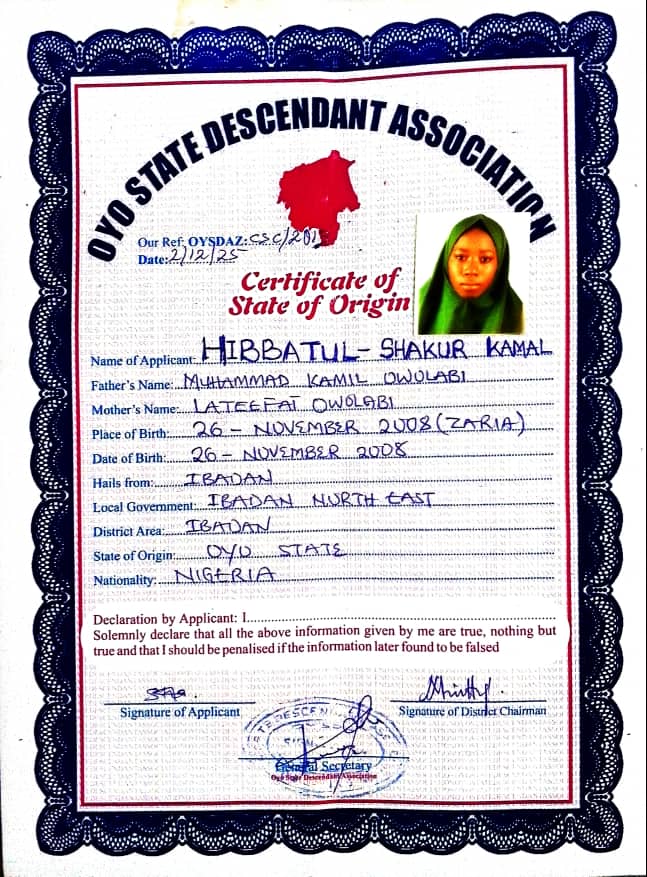 OYO STATE DESCENDANT ASSOCIATION
Our Ref: OYSDAZ: CSC/201
Date: 2/12/25
Certificate of
State of Origin
Name of Applicant: HIBBATUL-SHAKUR KAMAL
Father's Name: MUHAMMAD KAMIL OWOLABI
Mother's Name: LATEEFAT OWOLABI
Place of Birth: 26 - NOVEMBER 2008 (ZARIA)
Date of Birth: 26 - NOVEMBER 2008
Hails from: IBADAN
Local Government: IBADAN NURTH EAST
District Area: IBADAN
State of Origin: OYO STATE
Nationality: NIGERIA
Declaration by Applicant: I
Solemnly declare that all the above information given by me are true, nothing but
true and that I should be penalised if the information later found to be falsed
Signature of Applicant
Signature of District Chairman
General Secretary
Oyo State Descendant Association